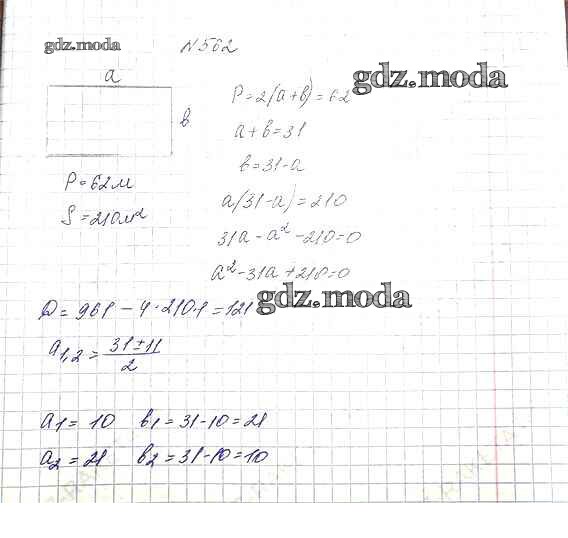 gdz.moda
N 562
gdz.moda
a
в
P = 2(a+в) = 62
a + в = 31
в = 31-a
P = 62м
S = 210м²
a(31-a) = 210
31a - a² - 210 = 0
a² - 31a + 210 = 0
D = 961 - 4·210·1 = 121
gdz.moda
a₁,₂ = (31±11)/2
a₁ = 10 в₁ = 31-10 = 21
a₂ = 21 в₂ = 31-10 = 10